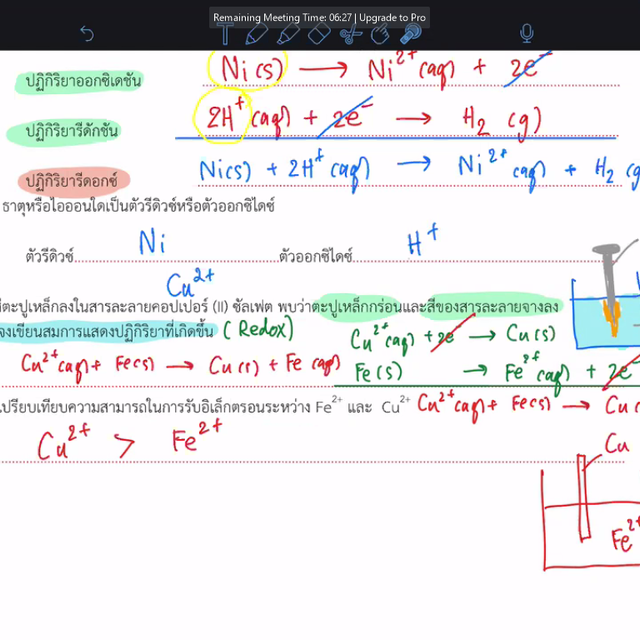 Remaining Meeting Time: 06:27 | Upgrade to Pro
ปฏิกิริยาออกซิเดชัน Ni(s) → Ni²⁺(aq) + 2e⁻
ปฏิกิริยารีดักชัน 2H⁺(aq) + 2e⁻ → H₂ (g)
ปฏิกิริยารีดอกซ์ Ni(s) + 2H⁺(aq) → Ni²⁺(aq) + H₂ (g
ธาตุหรือไอออนใดเป็นตัวรีดิวซ์หรือตัวออกซิไดซ์
ตัวรีดิวซ์ Ni ตัวออกซิไดซ์ H⁺
Cu²⁺
ตะปูเหล็กลงในสารละลายคอปเปอร์ (II) ซัลเฟต พบว่าตะปูเหล็กกร่อนและสีของสารละลายจางลง
จงเขียนสมการแสดงปฏิกิริยาที่เกิดขึ้น (Redox) Cu²⁺(aq) + 2e → Cu(s)
Cu²⁺(aq) + Fe(s) → Cu(s) + Fe (aq) Fe(s) → Fe²⁺(aq) + 2e⁻
เปรียบเทียบความสามารถในการรับอิเล็กตรอนระหว่าง Fe²⁺ และ Cu²⁺ Cu²⁺(aq) + Fe(s) → Cu(
Cu²⁺ > Fe²⁺
Cu
Fe²⁺